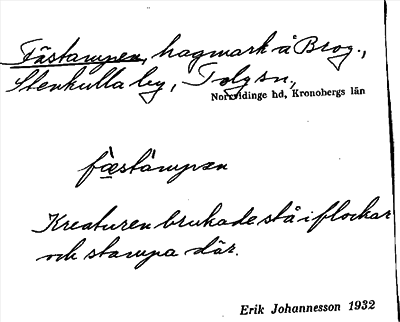 Fästampen, hagmark å Brog.,
Stenkulla by, Tolg sn.,
Norrvidinge hd, Kronobergs län
fæstampen
Kreaturen brukade stå i flockar
och stampa där.
Erik Johannesson 1932